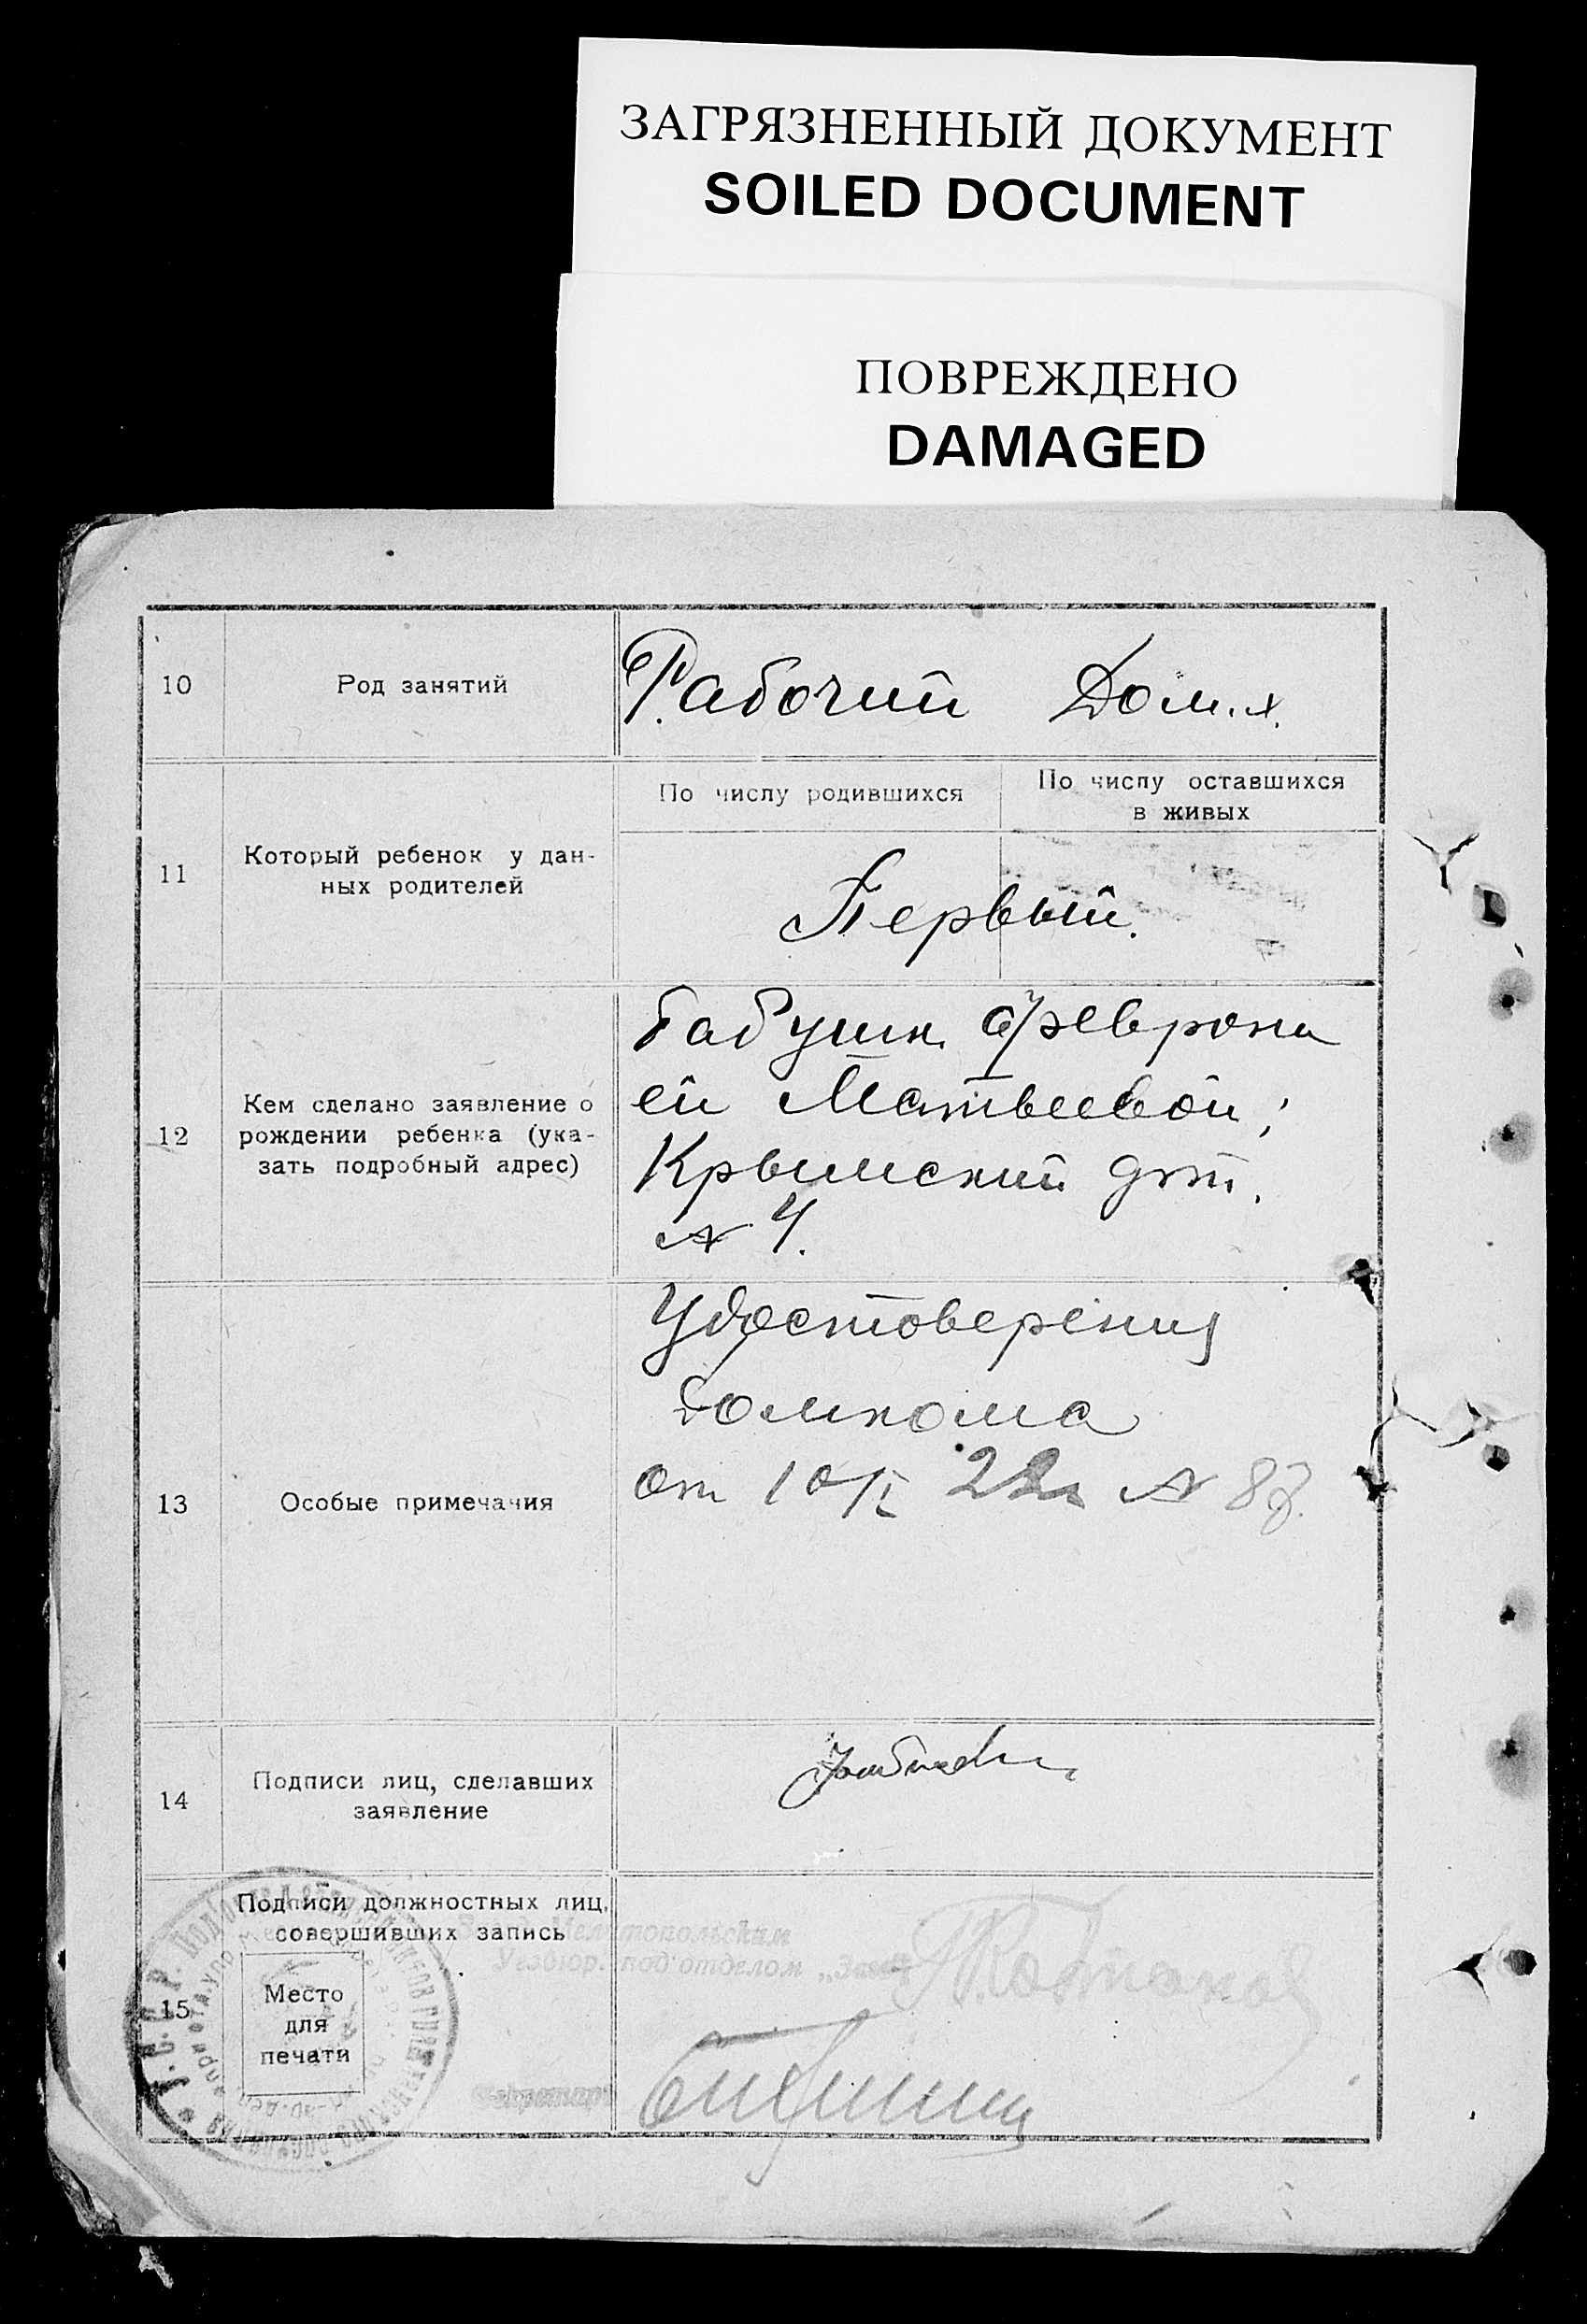 ЗАГРЯЗНЕННЫЙ ДОКУМЕНТ
SOILED DOCUMENT
ПОВРЕЖДЕНО
DAMAGED
10 Род занятий Рабочий Дом.х.
11 Который ребенок у дан-
ных родителей
По числу родившихся
По числу оставшихся
в живых
Первый.
12 Кем сделано заявление о
рождении ребенка (ука-
зать подробный адрес)
бабушк. Феврони
ей Матвеевой;
Крымский
№ 4.
13 Особые примечания
Удостоверения
домкома
от 10/V 22г №
14 Подписи лиц, сделавших
заявление
15 Подписи должностных лиц,
совершивших запись
Мелитопольским
под'отделом
Место
для
печати
Секретарь